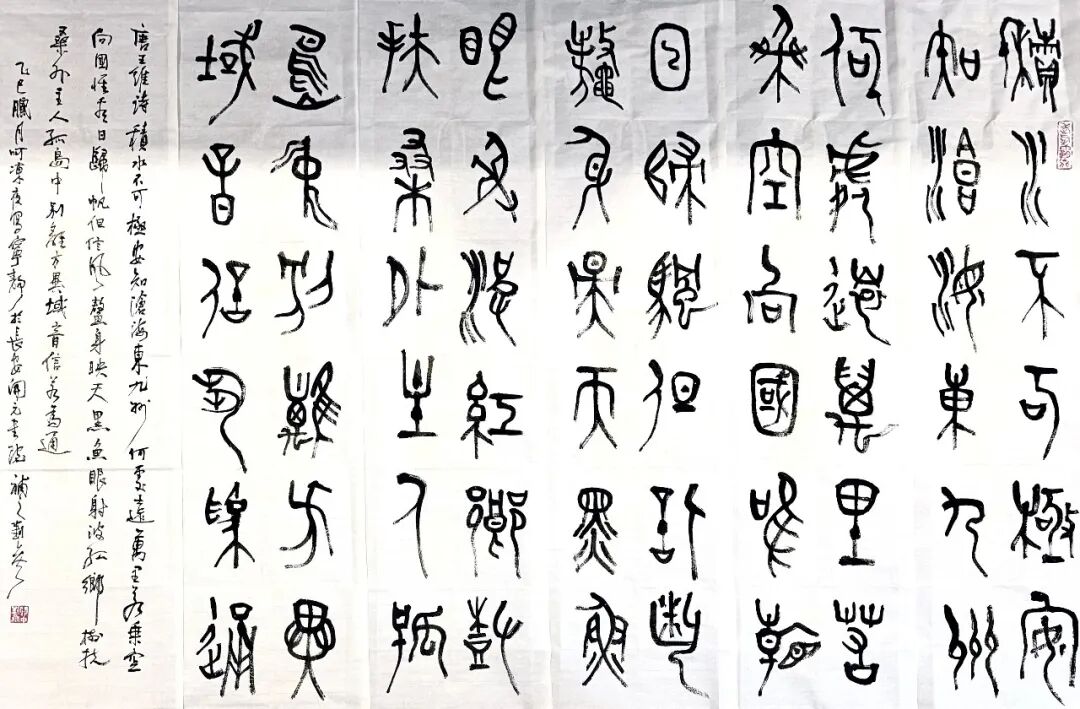 積水不可極安
知滄海東九州
何處遠萬里若
乘空向國唯看
日歸帆但信風
鰲身映天黑魚
眼射波紅鄉樹
扶桑外主人孤
島中別離方異
域音信若為通
唐王維詩積水不可極安知滄海東九州何處遠萬里若乘空
向國惟看日歸帆但信風鰲身映天黑魚眼射波紅鄉樹扶
桑外主人孤島中別離方異域音信若為通
乙巳臘月呵凍夜寫寧靜於長安開元書院